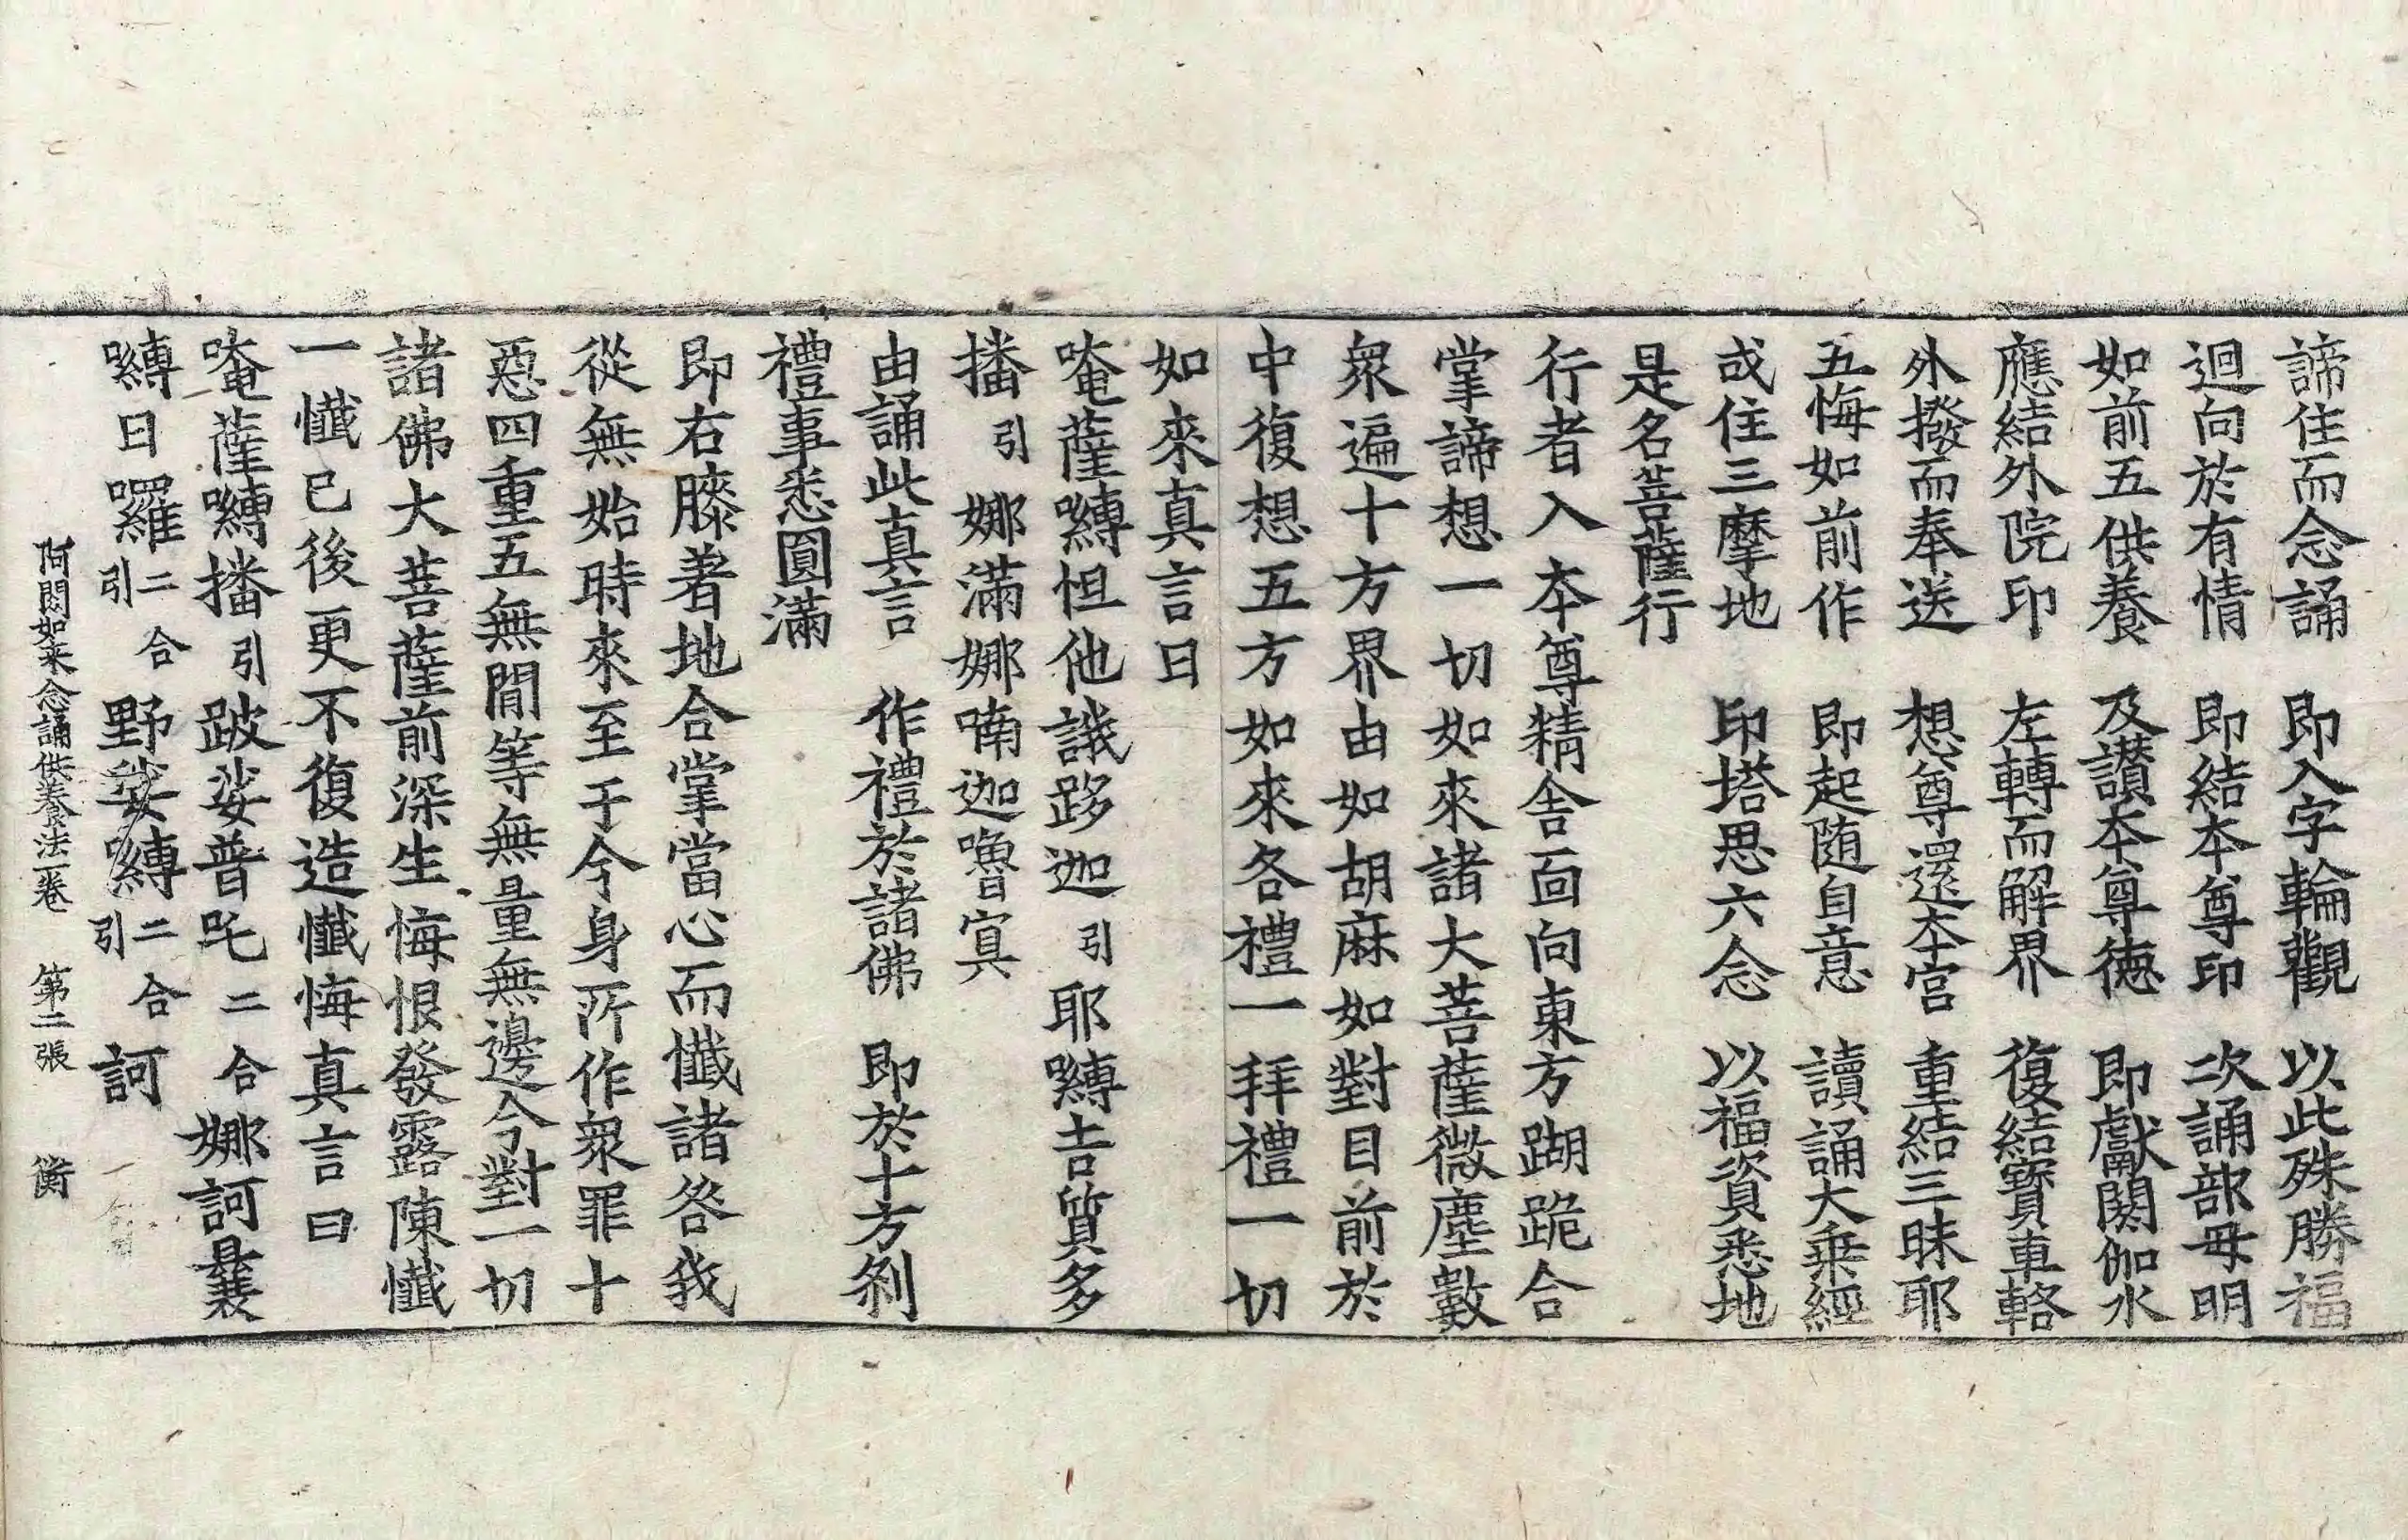 諦住而念誦　即入字輪觀　以此殊勝福
迴向於有情　即結本尊印　次誦部母明
如前五供養　及讚本尊德　即獻閼伽水
應結外院印　左轉而解界　復結寶車輅
外撥而奉送　想尊還本宮　重結三昧耶
五悔如前作　即起随自意　讀誦大乗經
或住三摩地　印塔思六念　以福資悉地
是名菩薩行
行者入本尊精舍面向東方䠒跪合
掌諦想一切如來諸大菩薩微塵數
衆遍十方界由如胡麻如對目前於
中復想五方如來各禮一拜禮一切
如來真言曰
唵薩嚩怛他誐跢迦引耶嚩吉質多
播引娜滿娜喃迦嚕寘
由誦此真言　作禮於諸佛　即於十方刹
禮事悉圓滿
即右膝著地合掌當心而懺諸咎我
從無始時來至于今身所作衆罪十
惡四重五無間等無量無邊今對一切
諸佛大菩薩前深生悔恨發露陳懺
一懺已後更不復造懺悔真言曰
唵薩嚩播引跛娑普吒二合娜訶曩
嚩日囉二合引野娑嚩二合引訶
阿閦如来念誦供養法一卷　第二張　衡